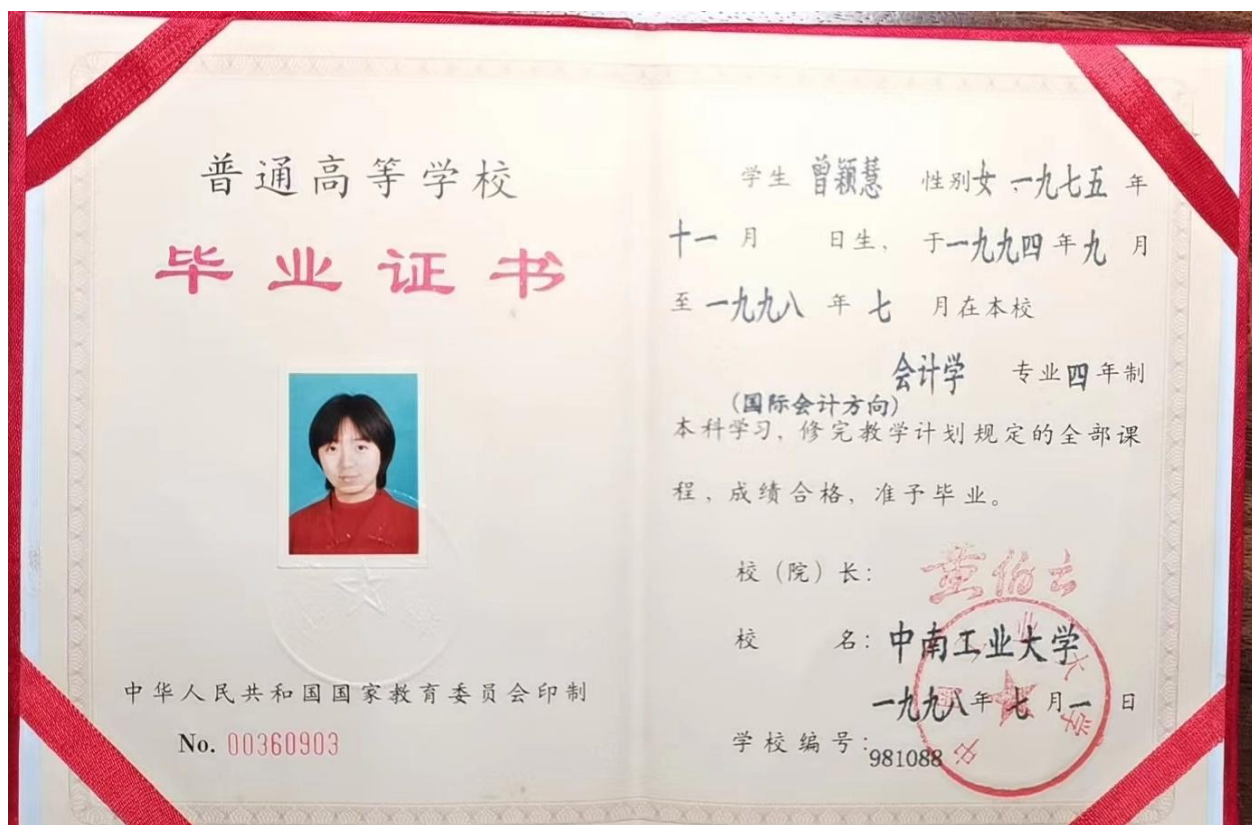 普通高等学校
毕业证书
中华人民共和国国家教育委员会印制
No. 00360903
学生 曾颖慧 性别女，一九七五年
十一月 日生，于一九九四年九月
至一九九八年七月在本校
会计学 专业四年制
(国际会计方向)
本科学习，修完教学计划规定的全部课
程，成绩合格，准予毕业。
校（院）长：黄伯云
校 名：中南工业大学
一九九八年七月一日
学校编号：981088